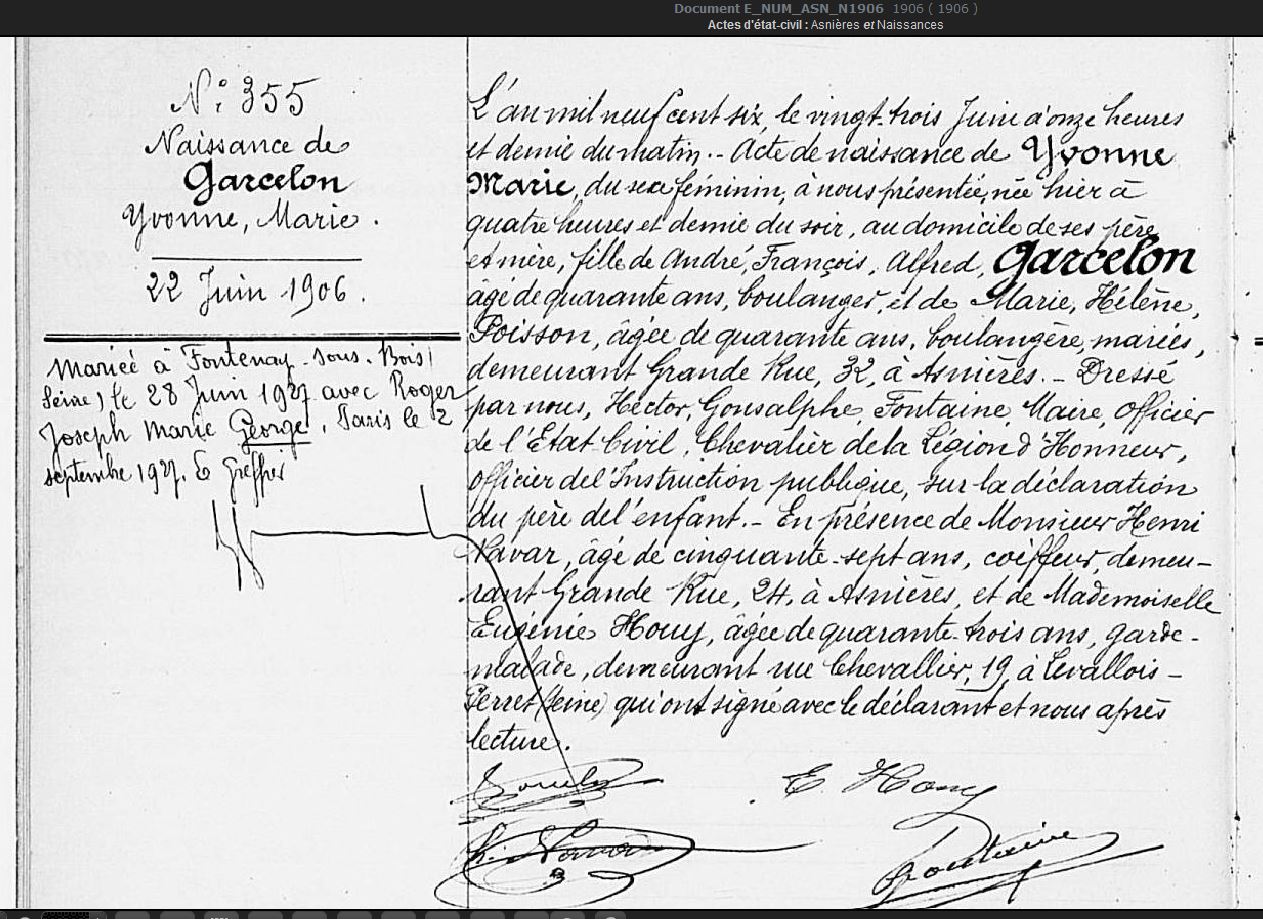 Document E_NUM_ASN_N1906 1906 ( 1906 )
Actes d'état-civil : Asnières et Naissances
N° 355
Naissance de
Garcelon
Yvonne, Marie.
22 Juin 1906.
Mariée à Fontenay-sous-Bois
Seine) le 28 Juin 1927 avec Roger
Joseph Marie George, Paris le 2
septembre 1927. Le Greffier
L'an mil neuf cent six, le vingt-trois Juin à onze heures
et demie du matin.- Acte de naissance de Yvonne
Marie, du sexe féminin, à nous présentée, née hier à
quatre heures et demie du soir, au domicile de ses père
et mère, fille de André, François, Alfred, Garcelon
âgé de quarante ans, boulanger, et de Marie, Hélène,
Poisson, âgée de quarante ans, boulangère, mariés,
demeurant Grande Rue, 32, à Asnières.- Dressé
par nous, Hector, Gonsalphe, Fontaine, Maire, Officier
de l'Etat-Civil, Chevalier de la Légion d'Honneur,
officier de l'Instruction publique, sur la déclaration
du père de l'enfant.- En présence de Monsieur Henri
Navar, âgé de cinquante-sept ans, coiffeur, demeu-
rant Grande Rue, 24, à Asnières, et de Mademoiselle
Eugénie Houy, âgée de quarante-trois ans, garde-
malade, demeurant rue Chevallier, 19, à Levallois-
Perret (Seine) qui ont signé avec le déclarant et nous après
lecture.
E. Houy
Fontaine